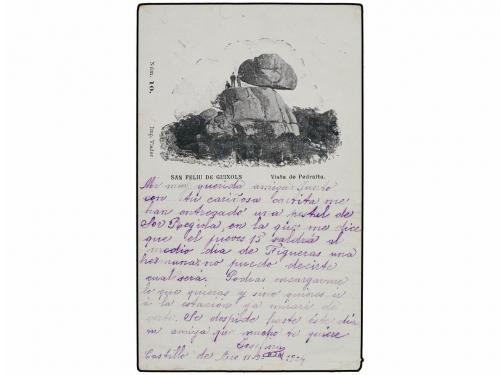 Núm. 10.
Imp. Viader
SAN FELIU DE GUIXOLS Vista de Pedralta.
Mi muy querida amiga: Junto
con tu cariñosa cartita me
han entregado una postal de
Sor Regina, en la que me dice
que el jueves 15 saldrá al
medio dia de Figueras una
hermana: no puedo decirte
cual será. Podras encargarme
lo que quieras y sino
á la estación ya miraré de
verte. Se despide hasta éste dia
tu amiga que mucho te quiere
Castillo de Aro 11 1904